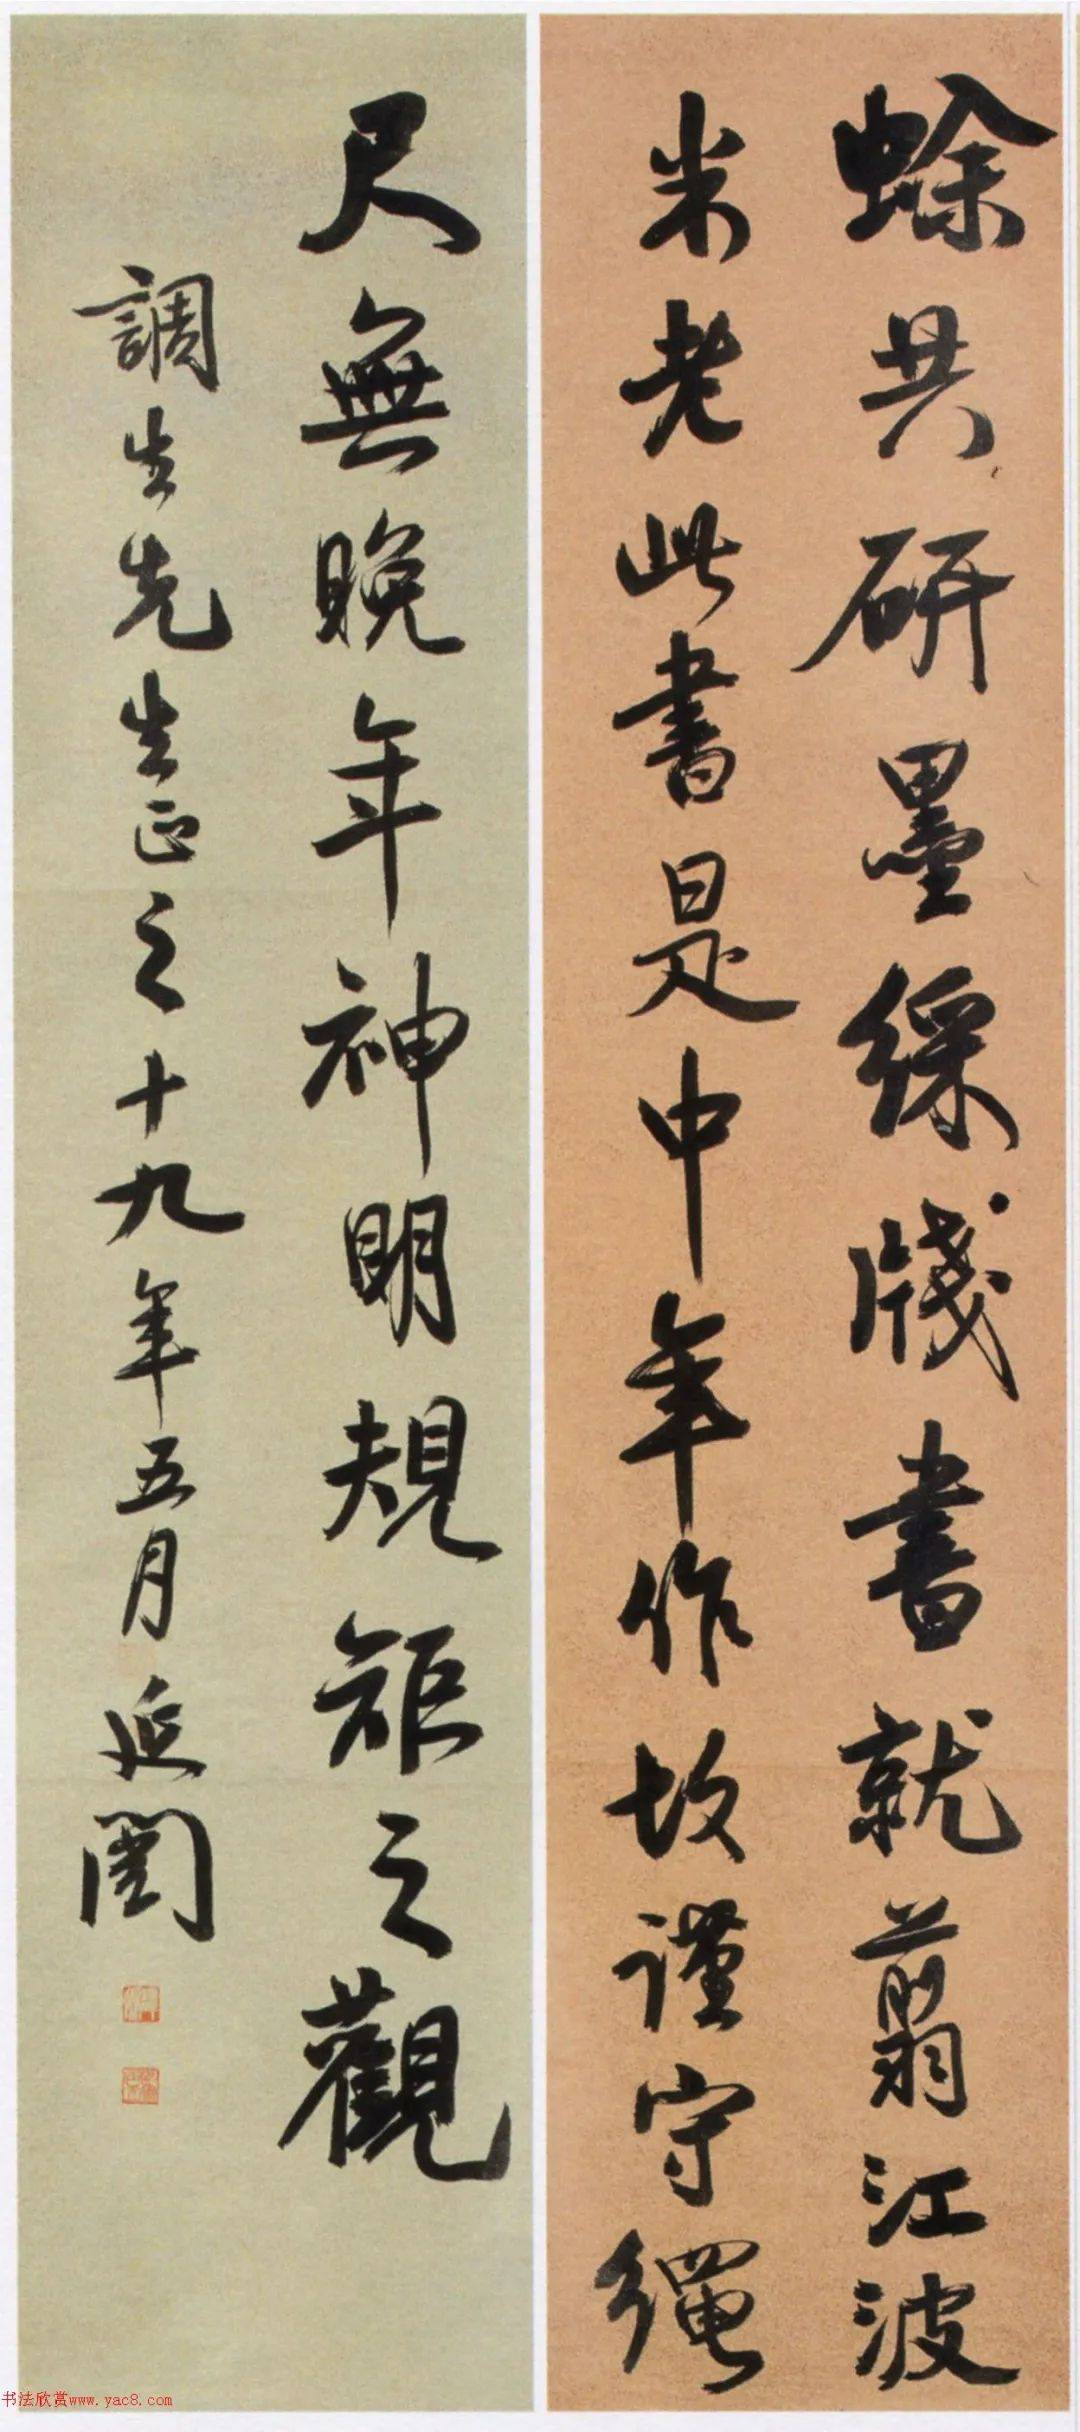 蜍共研墨綵牋書就翦江波
米老此書是中年作故謹守繩
尺無晚年神明規矩之觀
調生先生正之十九年五月延闓
书法欣赏www.yac8.com